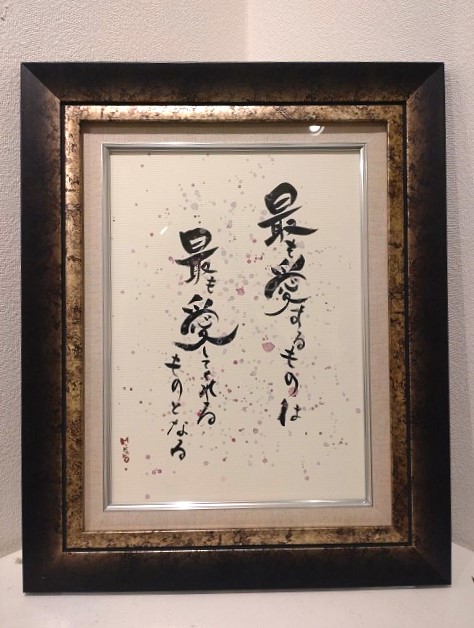 最も愛するものは
最も愛してくれる
ものとなる